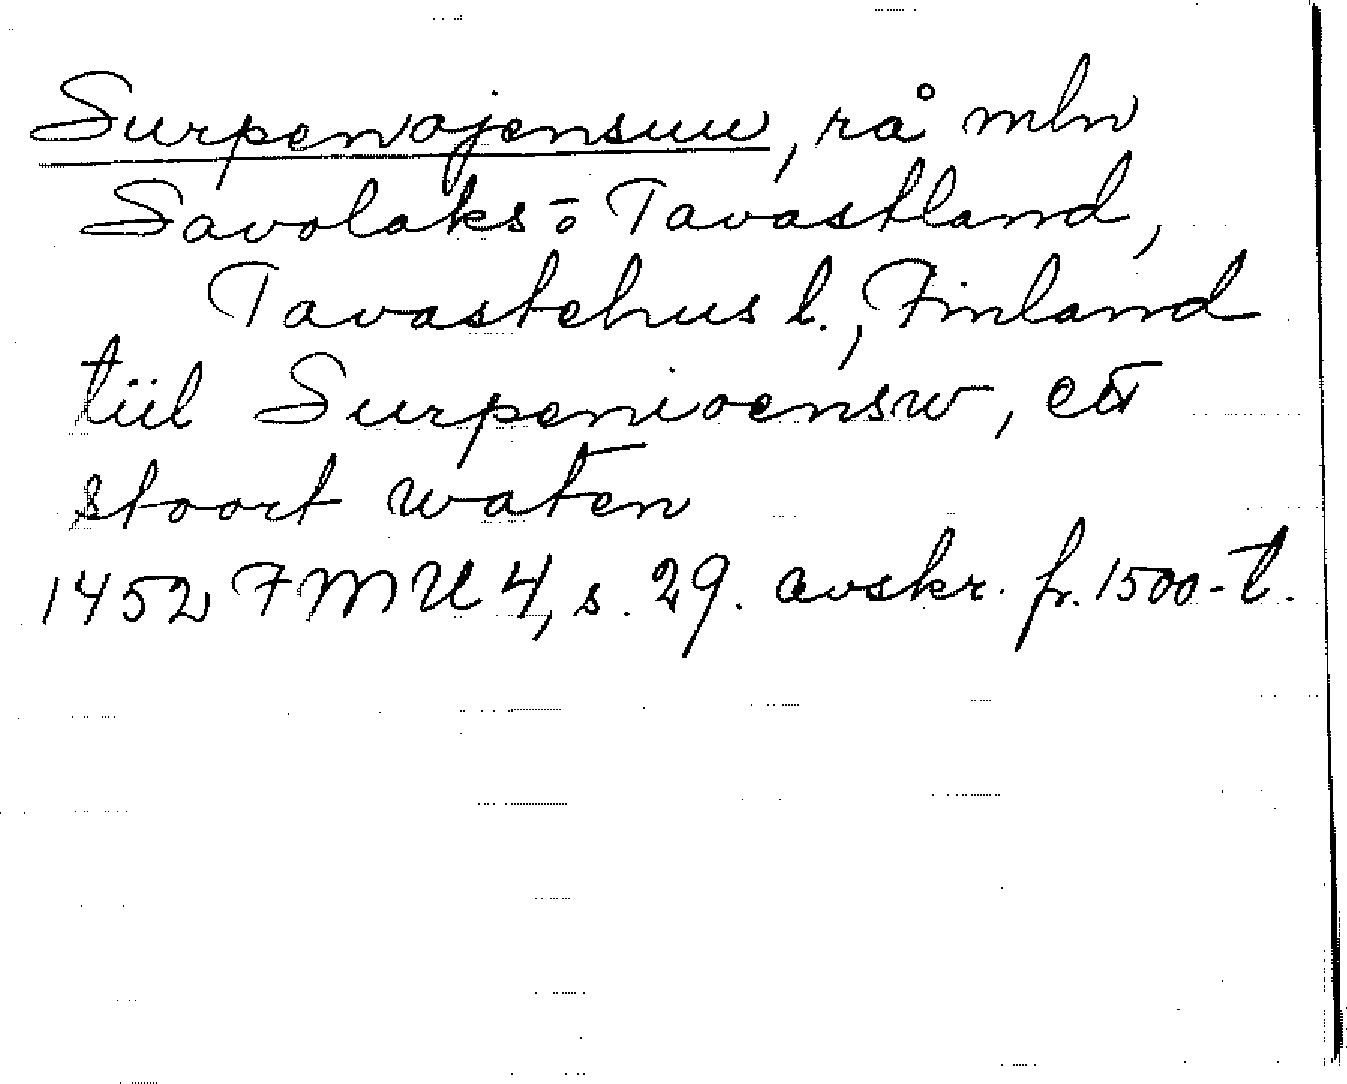 Surpenojensuu, rå mln
Savolaks - o Tavastland,
Tavastehus l., Finland
tiil Surpenioensw, ett
stoort waten
1452 FMU 4, s. 29. avskr. fr. 1500-t.